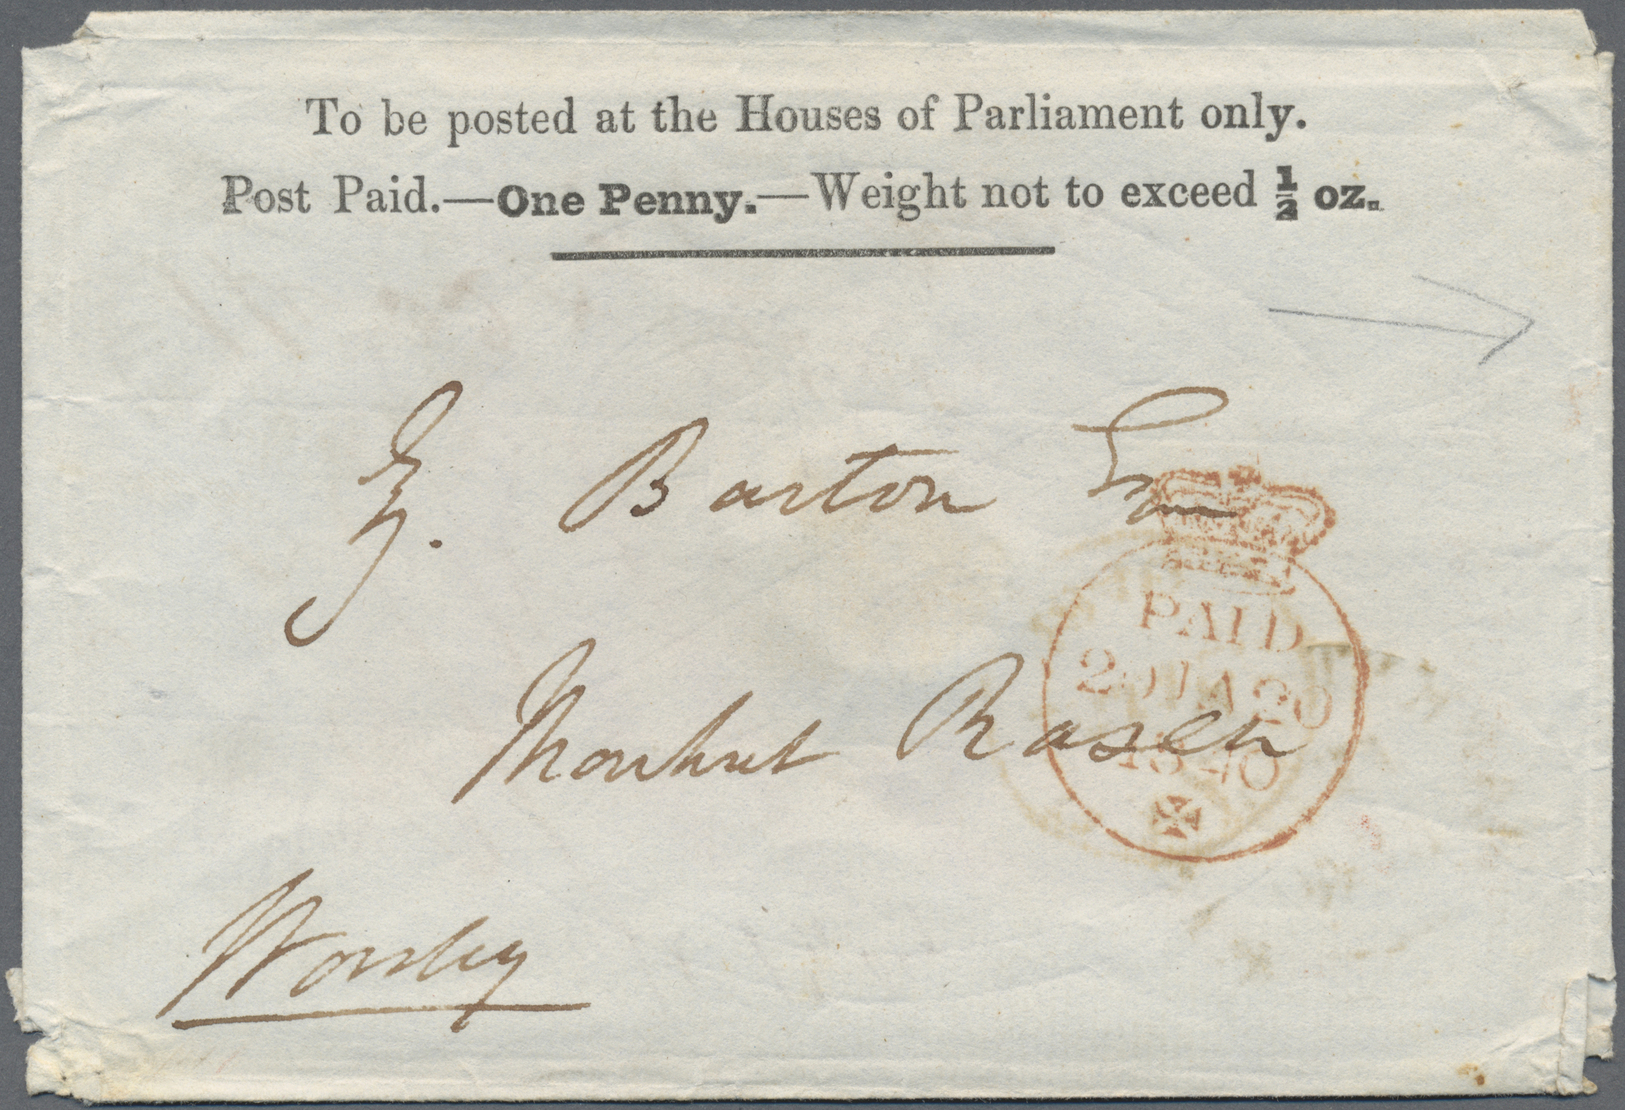 To be posted at the Houses of Parliament only.
Post Paid.—One Penny.—Weight not to exceed ½ oz.
Z. Barton Esq
Markut Rasen
PAID
20 JA 20
1840
Worsley